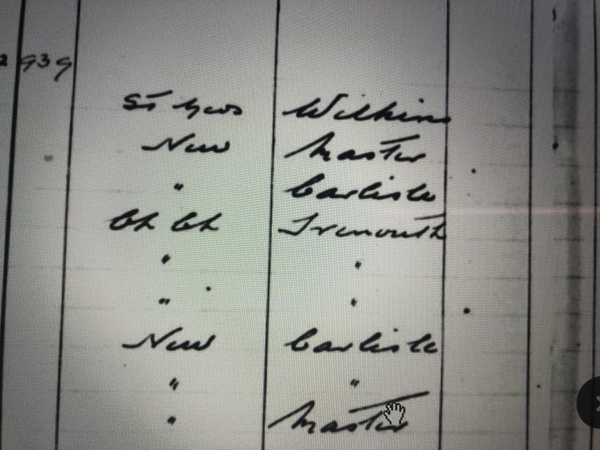 939
St Yeos Wilkins
New Master
" Carlisle
Ch Ch Iremouth
" "
" "
New Carlisle
" "
" Master